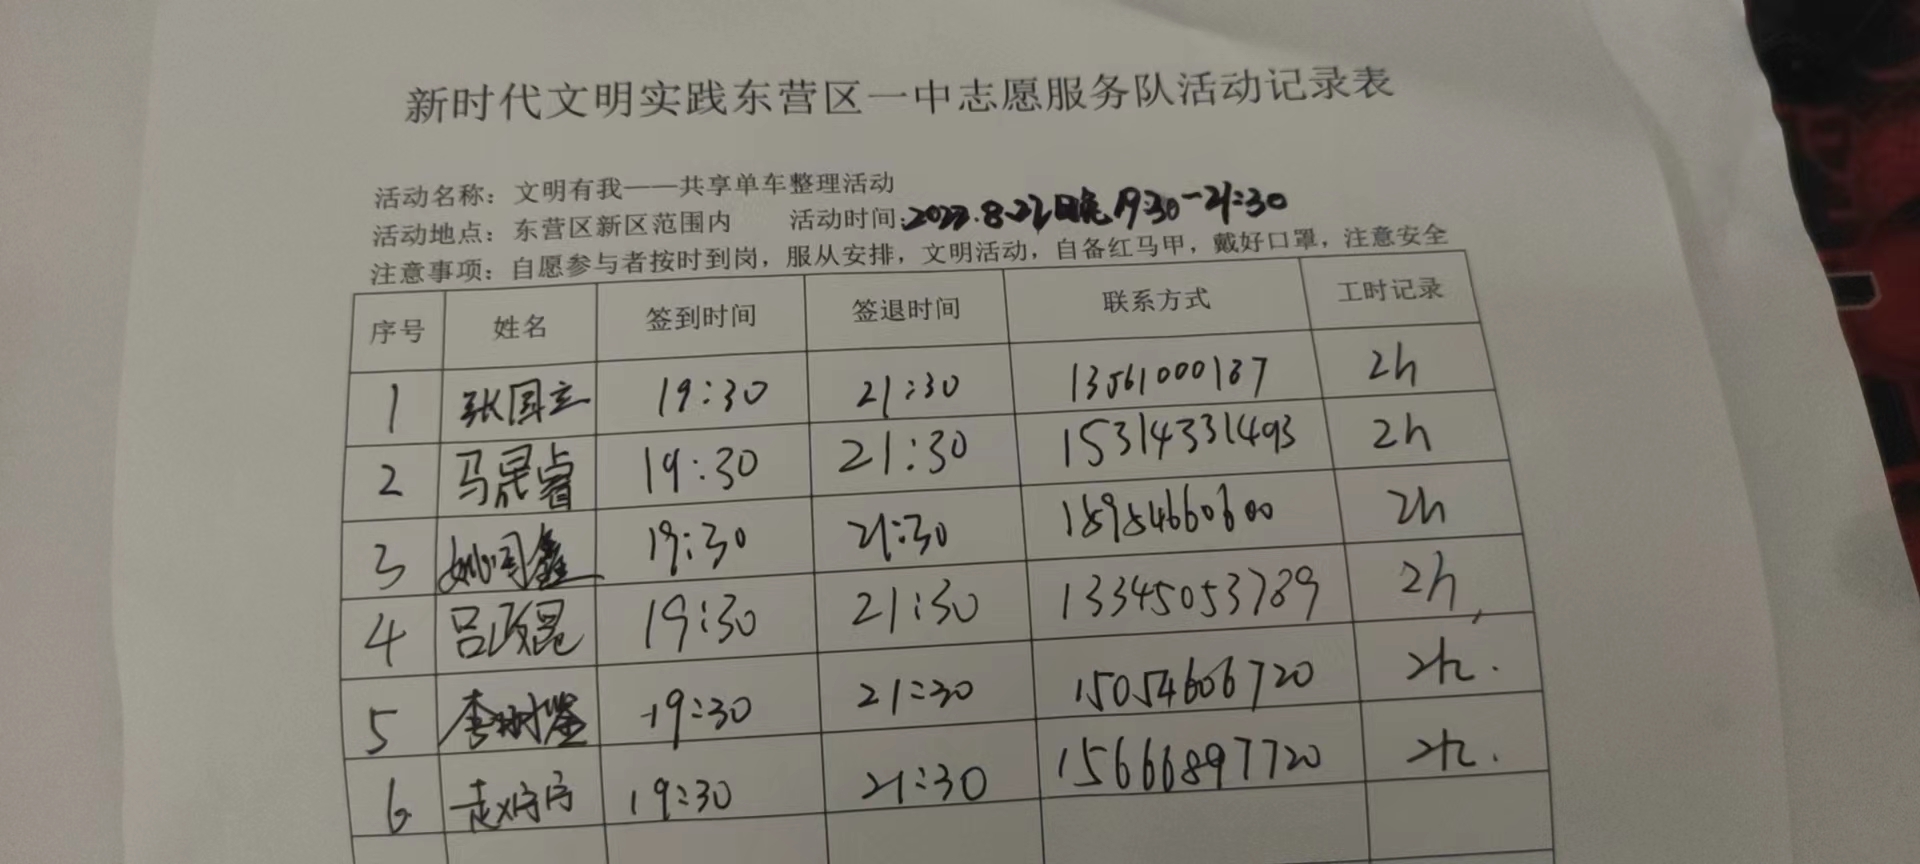 新时代文明实践东营区一中志愿服务队活动记录表
活动名称：文明有我——共享单车整理活动
活动地点：东营区新区范围内 活动时间：2022.8.22日晚19:30-21:30
注意事项：自愿参与者按时到岗，服从安排，文明活动，自备红马甲，戴好口罩，注意安全
序号 姓名 签到时间 签退时间 联系方式 工时记录
1 张国立 19:30 21:30 13561000187 2h
2 马晟睿 19:30 21:30 15314331493 2h
3 姚闰鑫 19:30 21:30 18954660600 2h
4 吕政昆 19:30 21:30 13345053789 2h
5 李 19:30 21:30 15054606720 2h.
6 赵 19:30 21:30 15666897720 2h.